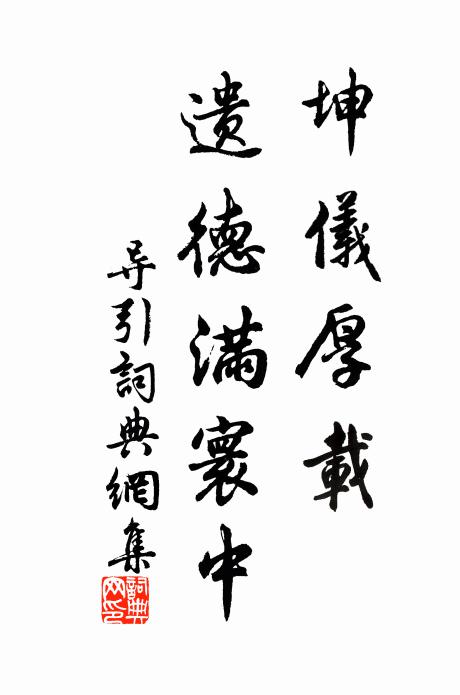 坤儀厚載
遺德滿寰中
导引詞典網集
詞典网印